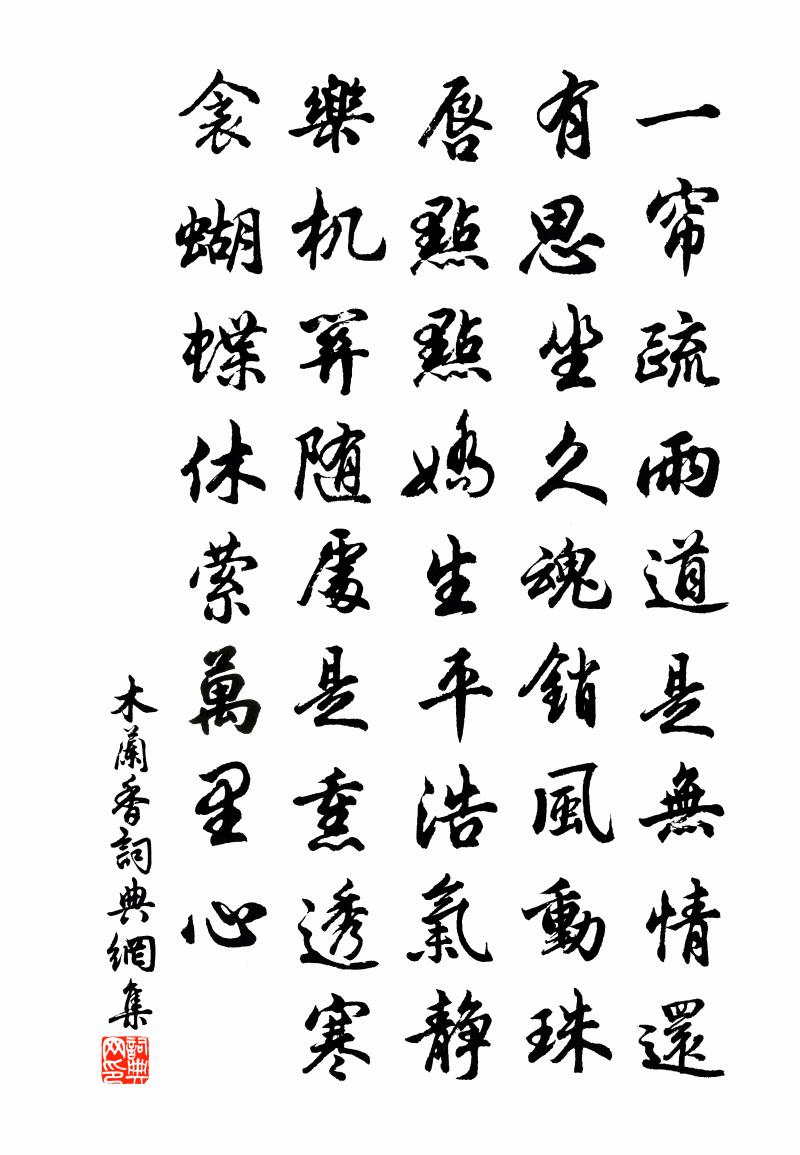 一帘疏雨道是無情還
有思坐久魂銷風動珠
唇點點嬌生平浩氣静
樂机關随處是熏透寒
衾蝴蝶休縈萬里心
木蘭香詞典網集
詞典
网印